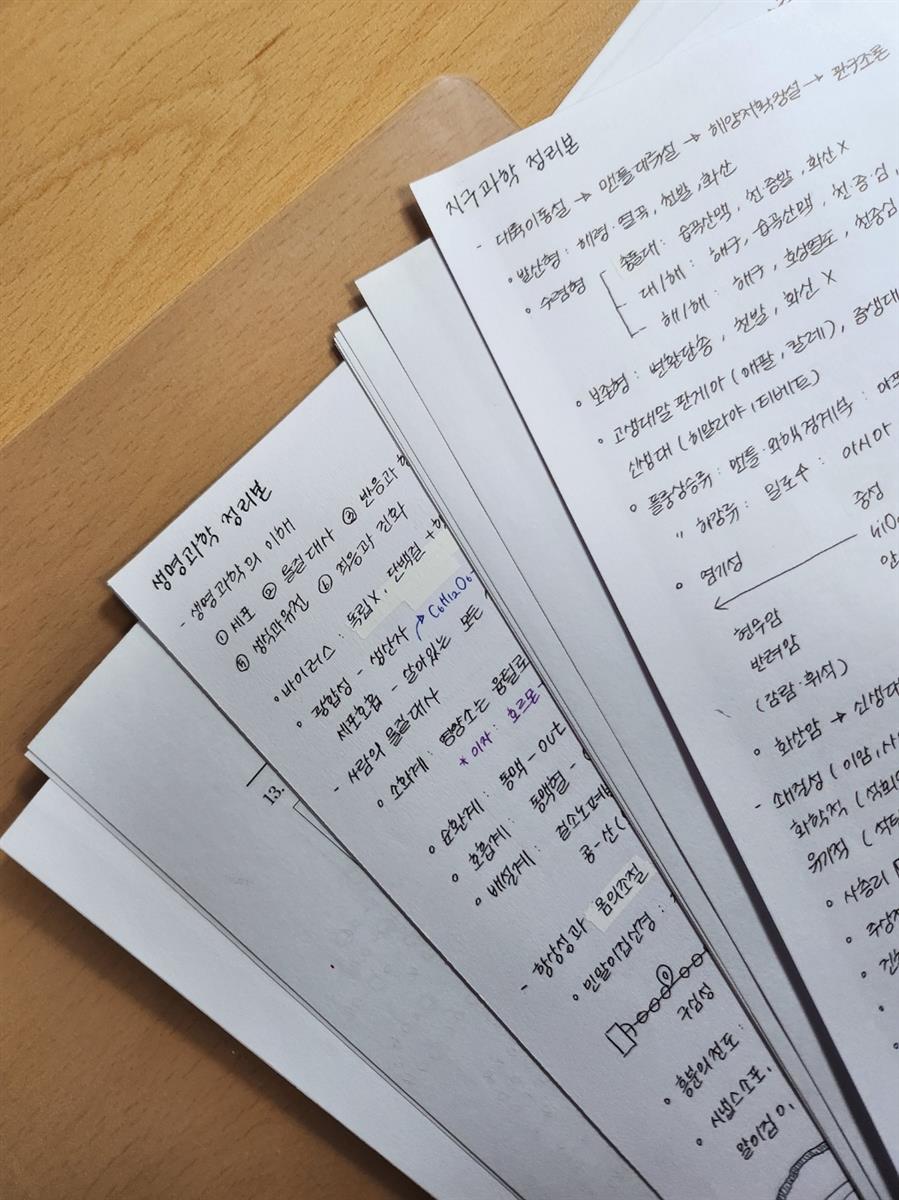 지구과학 정리본
- 대륙이동설 → 맨틀대류설 → 해양저확장설 → 판구조론
∘ 발산형 : 해령·열곡, 천발, 화산
∘ 수렴형
충돌대 : 습곡산맥, 천·중발, 화산 X
대/해 : 해구, 습곡산맥, 천·중·심,
해/해 : 해구, 호상열도, 천중심
∘ 보존형 : 변환단층, 천발, 화산 X
∘ 고생대말 판게아 (애팔, 칼레), 중생대
신생대 (히말라야, 티베트)
∘ 플룸상승류 : 맨틀·외핵 경계부 :
〃 하강류 : 밀로수 : 아시아
중성
∘ 염기성
현무암
반려암
(감람·휘석)
∘ 화산암 → 신생대
- 쇄설성 (이암, 사
화학적 (석회
유기적 (석탄
∘ 사층리
생명과학 정리본
- 생명과학의 이해
① 세포 ② 물질대사 ③ 반응과
⑤ 생식과유전 ⑥ 적응과 진화
∘ 바이러스 : 독립X, 단백질 + 핵
∘ 광합성 - 생산자 → C6H12O6
세포호흡 - 살아있는 모든
- 사람의 물질대사
∘ 소화계 : 영양소는 융털로
* 이자 : 호르몬
∘ 순환계 : 동맥 - out
∘ 호흡계 : 동맥혈 -
∘ 배설계 : 질소노폐물
콩-산
- 항상성과 몸의조절
∘ 민말이집신경 :
구심성
∘ 흥분의전도 :
∘ 시냅스소포,
말이집 O,
13.